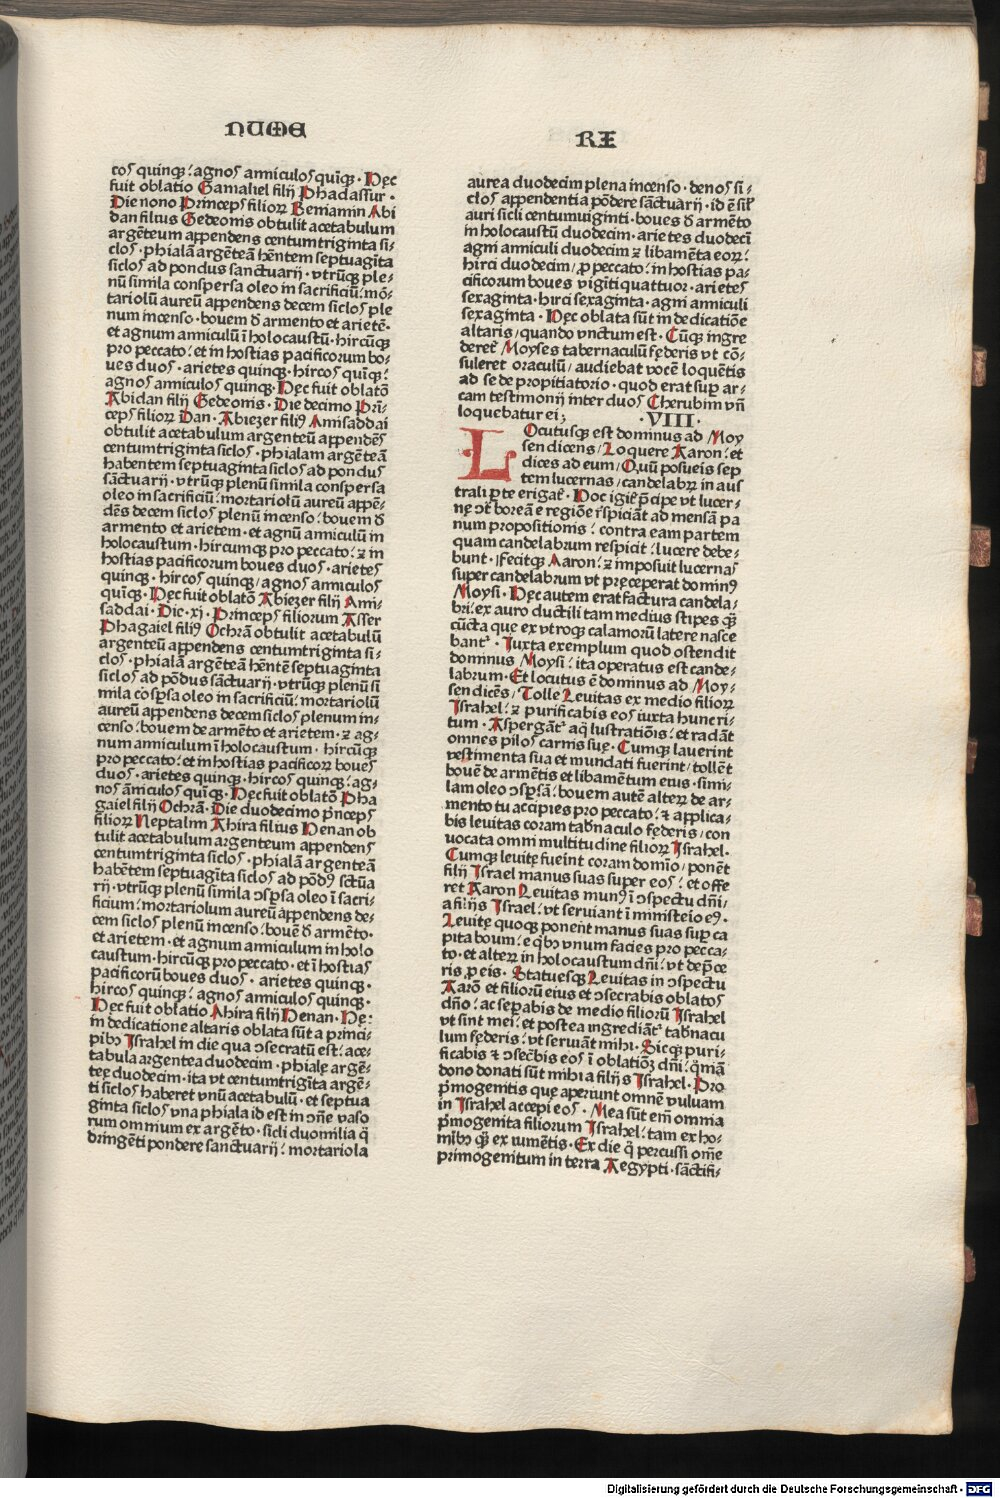 NUME
RI
cos quinqꝫ: agnos anniculos quīqꝫ · Hęc
fuit oblatio Gamaliel filij Phadassur ·
Die nono Princeps filioꝝ Beniamin Abi
dan filius Gedeonis obtulit acetabulum
argēteum appendens centumtriginta si-
clos · phialā argēteā hñtem septuagīta
siclos ad pondus sanctuarij · vtrūqꝫ ple-
nū simila conspersa oleo in sacrificiū: mō-
tariolū aureū appendens decem siclos ple
num incenso · bouem đ armento et arietē ·
et agnum anniculū ī holocaustū · hircūqꝫ
pro peccato: et in hostias pacificorum bo-
ues duos · arietes quinqꝫ · hircos quīqꝫ:
agnos anniculos quinqꝫ · Hęc fuit oblatō
Abidan filij Gedeonis · Die decimo Prī-
ceps filioꝝ Dan · Abiezer filiꝰ Amisaddai
obtulit acetabulum argenteū appendēs
centumtriginta siclos · phialam argēteā
habentem septuaginta siclos ad pondus
sāctuarij · vtrūqꝫ plenū simila conspersa
oleo in sacrificiū: mortariolū aureū appē-
dēs decem siclos plenū incenso: bouem đ
armento et arietem · et agnū anniculū in
holocaustum · hircumqꝫ pro peccato: ꝛ in
hostias pacificorum boues duos · arietes
quinqꝫ · hircos quinqꝫ/ agnos anniculos
quīqꝫ · Hęc fuit oblatō Abiezer filij Ami-
saddai · Die · xj · Princeps filiorum Asser
Phagaiel filiꝰ Ochrā obtulit acetabulū
argenteū appendens centumtriginta si-
clos · phialā argēteā hēntē septuaginta
siclos ad pōdus sāctuarij · vtrūqꝫ plenū si
mila cōspsa oleo in sacrificiū: mortariolū
aureū appendens decem siclos plenum in-
censo: bouem de armēto et arietem · ꝛ ag-
num anniculum ī holocaustum · hircūqꝫ
pro peccato: et in hostias pacificoꝝ boues
duos · arietes quinqꝫ · hircos quinqꝫ: ag-
nos āniculos quīqꝫ · Hęc fuit oblatō Pha
gaiel filij Ochrā · Die duodecimo pñceps
filioꝝ Neptalim Ahira filius Henan ob
tulit acetabulum argenteum appendens
centumtriginta siclos · phialā argenteā
habētem septuagīta siclos ad pōdꝰ sctūa
rij · vtrūqꝫ plenū simila ɔspsa oleo ī sacri-
ficium: mortariolum aureū appendens de-
cem siclos plenū incenso: bouē đ armēto ·
et arietem · et agnum anniculum in holo
caustum · hircūqꝫ pro peccato · et ī hostias
pacificorū boues duos · arietes quinqꝫ ·
hircos quinqꝫ: agnos anniculos quinqꝫ ·
Hęc fuit oblatio Ahira filij Henan · Hę:
in dedicatione altaris oblata sūt a princi-
pibꝰ Israhel in die qua ɔsecratū est: ace-
tabula argentea duodecim · phialę argē-
tęę duodecim · ita vt centumtrigīta argē-
ti siclos haberet vnū acetabulū · et septua
ginta siclos vna phiala id est in ɔñe vaso
rum omnium ex argēto · sicli duomilia q̄
dringēti pondere sanctuarij: mortariola
aurea duodecim plena incenso · denos si-
clos appendentia pōdere sāctuarij · id ē sił
auri sicli centumuiginti · boues đ armēto
in holocaustū duodecim · arietes duodecī
agni anniculi duodecim ꝛ libamēta eoꝝ:
hirci duodecim/ ꝓ peccato: in hostias pa-
cificorum boues vigīti quattuor · arietes
sexaginta · hirci sexaginta · agni anniculi
sexaginta · Hęc oblata sūt in dedicatiōe
altaris/ quando vnctum est · Cūqꝫ ingre
deret Moyses tabernaculū fęderis vt cō-
suleret oraculū/ audiebat vocē loquētis
ad se de propitiatorio · quod erat sup ar-
cam testimonij inter duos Cherubim vñ
loquebatur ei;
· VIII ·
LOcutusqꝫ est dominus ad Moy
sen dicens/ Loquere Aaron: et
dices ad eum/ Quū posueis sep
tem lucernas/ candelabꝝ in aus
trali ꝑte erigat · Hoc igit p̄cipe vt lucer-
nę ɔt boreā e regiōe rspiciāt ad mensā pa
num propositionis: contra eam partem
quam candelabrum respicit: lucere debe-
bunt · Fecitqꝫ Aaron: ꝛ imposuit lucernas
super candelabrum vt pręceperat dominꝰ
Moysi · Hęc autem erat factura candela-
bri: ex auro ductili tam medius stipes qꝫ
cūcta que ex vtroqꝫ calamorū latere nasce
bant · Iuxta exemplum quod ostendit
dominus Moysi: ita operatus est cande-
labrum · Et locutus ē dominus ad Moy-
sen dicēs/ Tolle Leuitas ex medio filioꝝ
Israhel: ꝛ purificabis eos iuxta hunc ri-
tum · Aspergāt aq̄ lustratiōis: et radāt
omnes pilos carnis suę · Cumqꝫ lauerint
vestimenta sua et mundati fuerint/ tollēt
bouē de armētis et libamētum eius · simi-
lam oleo ɔspsā: bouem autē alteꝝ de ar-
mento tu accipies pro peccato: ꝛ applica-
bis leuitas coram tabñaculo fęderis/ con
uocata omni multitudine filioꝝ Israhel ·
Cumqꝫ leuitę fueint coram domīo/ ponēt
filij Israel manus suas super eos: et offe
ret Aaron Leuitas munꝰ ī ɔspectu dñi/
a filijs Israel: vt seruiant ī ministeīo eꝰ ·
Leuitę quoqꝫ ponent manus suas sup ca
pita boum: e qbꝰ vnum facies pro pecca-
to · et alteꝝ in holocaustum dñi: vt dep̄ce
ris ꝓ eis · Statuesqꝫ Leuitas in ɔspectu
Aarō et filiorū eius et ɔsecrabis oblatos
dño: ac sepabis de medio filiorū Israhel
vt sint mei: et postea ingrediāt tabñacu
lum fęderis: vt seruiāt mihi · Sicqꝫ puri-
ficabis ꝛ ɔsecbis eos ī oblatiōꝫ dñi: qm̄iā
dono donati sūt mihi a filijs Israhel · Pro
p̄mogenitis quę aperiunt omnē vuluam
in Israhel accepi eos · Mea sūt em̄ omnia
p̄mogenita filiorum Israhel: tam ex ho-
mībꝰ qꝫ ex iumētis · Ex die q̄ percussi om̄e
primogenitum in terra Aegypti · sāctifi-
Digitalisierung gefördert durch die Deutsche Forschungsgemeinschaft - DFG